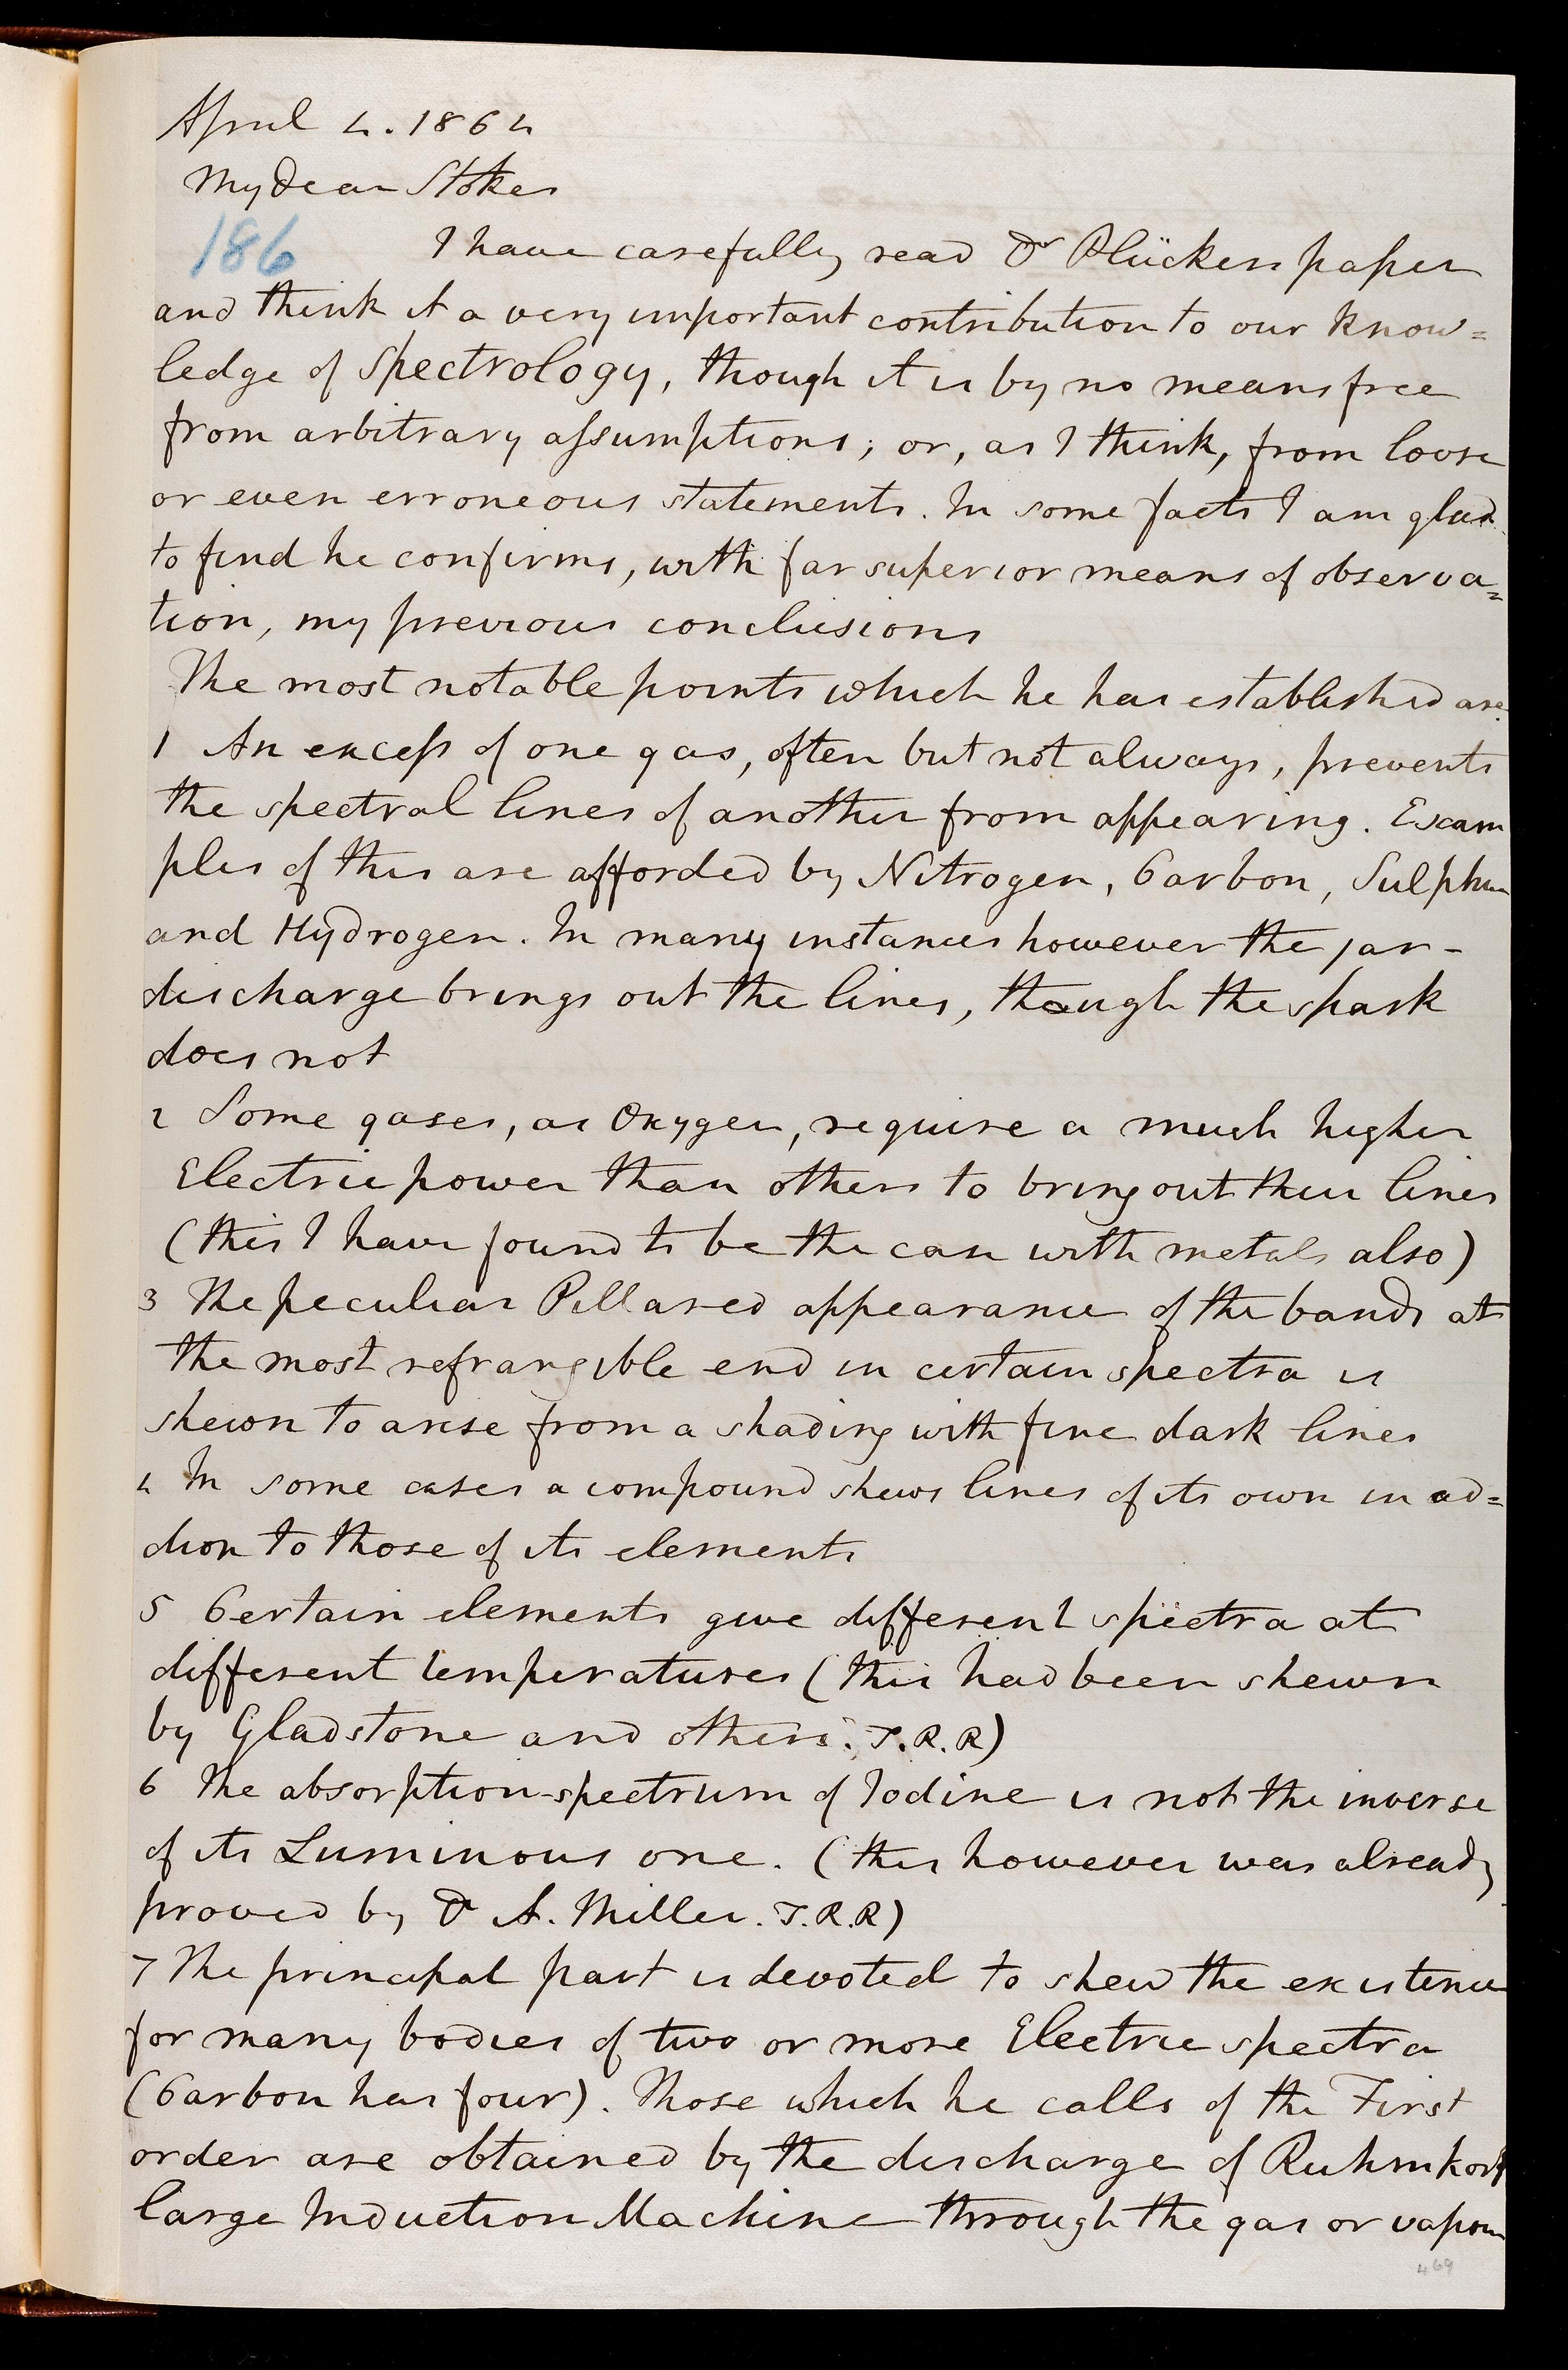 April 4. 1864
My dear Stokes
186
I have carefully read Dr Plückers paper
and think it a very important contribution to our know=
ledge of spectrology, though it is by no means free
from arbitrary assumptions; or, as I think, from loose
or even erroneous statements. In some facts I am glad
to find he confirms, with far superior means of observa=
tion, my previous conclusions
The most notable points which he has established are
1 An excess of one gas, often but not always, prevents
the spectral lines of another from appearing. Exam
ples of this are afforded by Nitrogen, Carbon, Sulphur
and Hydrogen. In many instances however the jar-
discharge brings out the lines, though the spark
does not
2 Some gases, as Oxygen, require a much higher
Electric power than others to bring out their lines
(this I have found to be the case with metals also)
3 The peculiar Pillared appearance of the bands at
the most refrangible end in certain spectra is
shewn to arise from a shading with fine dark lines
4 In some cases a compound shews lines of its own in ad=
dion to those of its elements
5 Certain elements give different spectra at
different temperatures (this had been shewn
by Gladstone and others. T.R.R)
6 The absorption-spectrum of Iodine is not the inverse
of its Luminous one. (this however was already
proved by D A. Miller. T.R.R)
7 The principal part is devoted to shew the existence
for many bodies of two or more Electric spectra
(Carbon has four). Those which he calls of the First
order are obtained by the discharge of Ruhmkorff
large Induction Machine through the gas or vapour
469